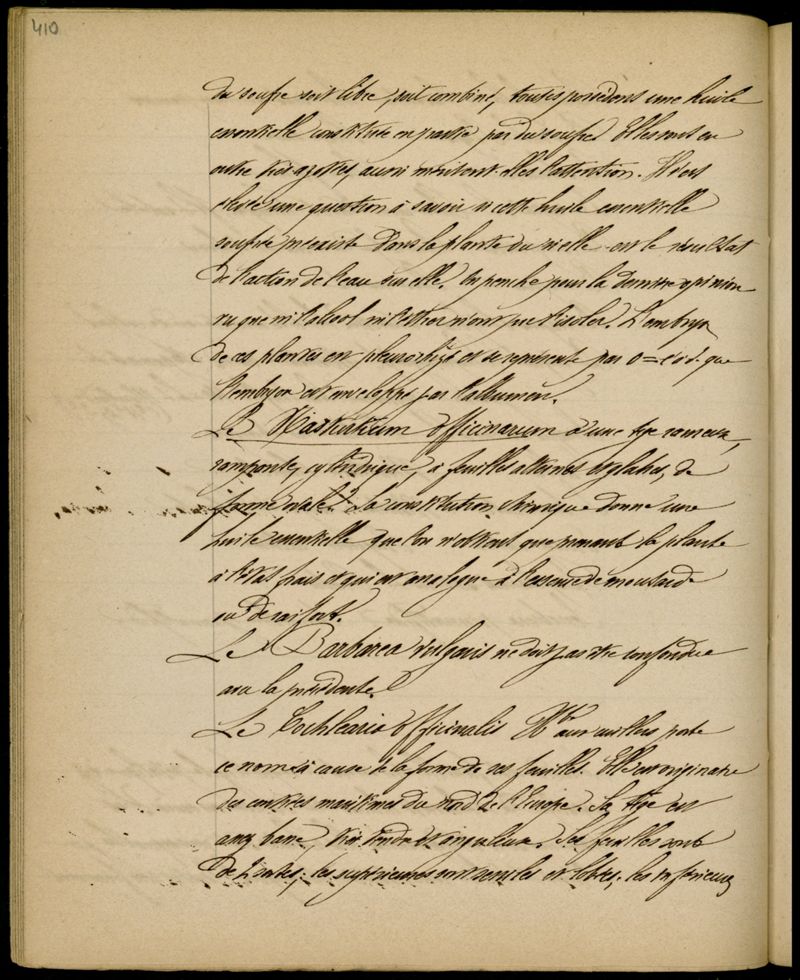 410
du soufre soit libre, soit combiné, toutes possèdent une huile
essentielle constituée en partie par du soufre. Elles sont en
outre très azotées, aussi méritent-elles l'attention. Il s'est
élevé une question à savoir si cette huile essentielle
soufrée préexiste dans la plante ou si elle est le résultat
de l'action de l'eau sur elle. On penche pour la dernière opinion
vu que ni l'alcool ni l'éther n'ont pu l'isoler. L'embryon
de ces plantes est pleurorhizé et se représente par o = c'est-à-d. que
l'embryon est enveloppé par l'albumen.
Le Nasturtium officinarum a une tige rameuse,
rampante, cylindrique, à feuilles alternes et glabres, de
forme ovale. Sa constitution chimique donne une
huile essentielle que l'on n'obtient que prenant la plante
à l'état frais et qui est analogue à l'essence de moutarde
ou de raifort.
Le Barbarea vulgaris ne doit pas être confondue
avec la précédente.
Le Cochlearia officinalis Hbe aux cuillers porte
ce nom à cause de la forme de ses feuilles. Elle est originaire
des contrées maritimes du nord de l'Europe. Sa tige est
assez basse, très tendre et anguleuse. Ses feuilles sont
de 2 sortes; les supérieures sont sessiles et lobées; les inférieures